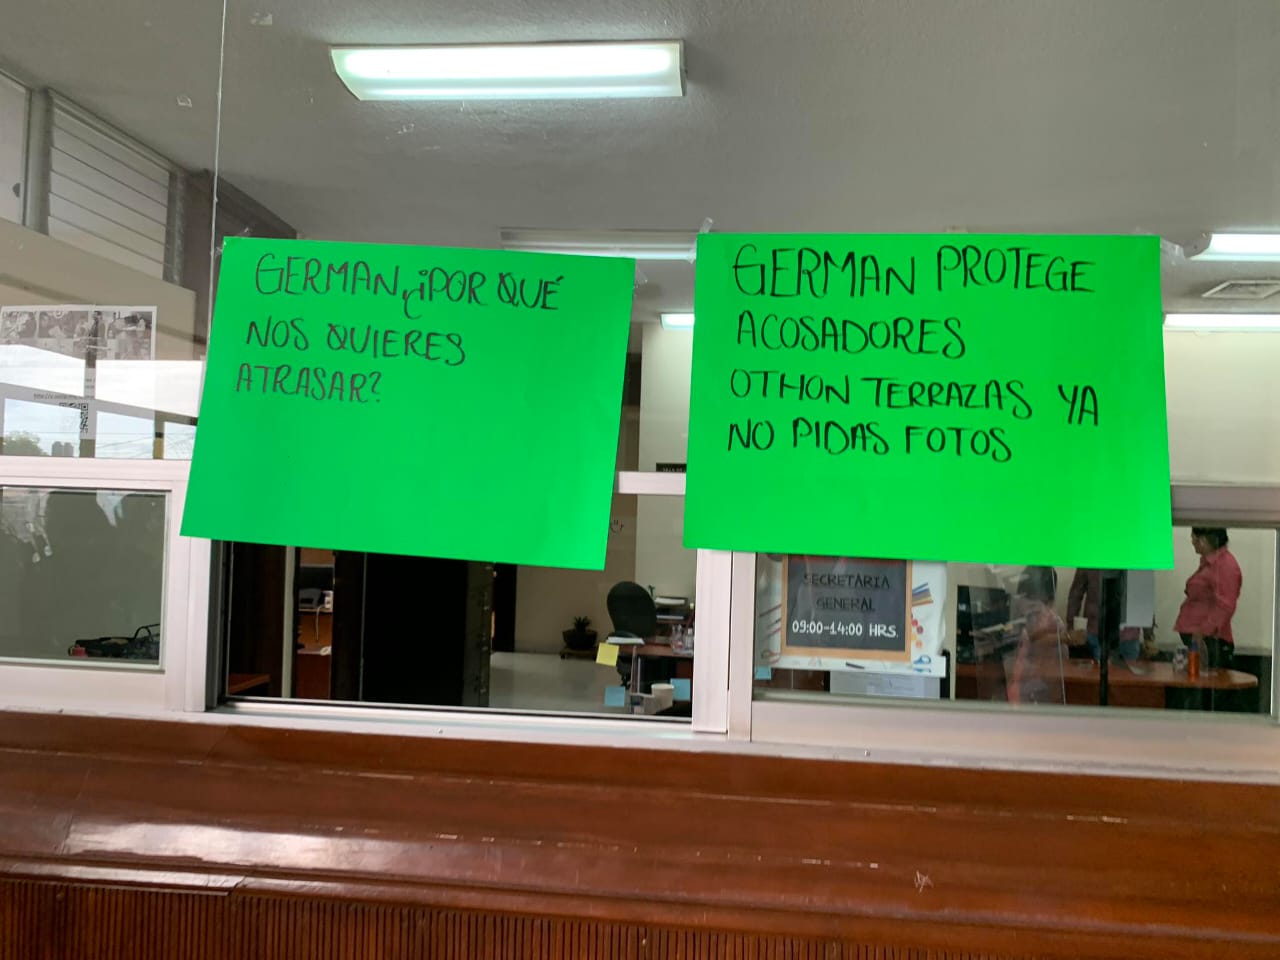 GERMAN, ¿POR QUÉ
NOS QUIERES
ATRASAR?
GERMAN PROTEGE
ACOSADORES
OTHON TERRAZAS YA
NO PIDAS FOTOS
SECRETARIA
GENERAL
09:00-14:00 HRS.